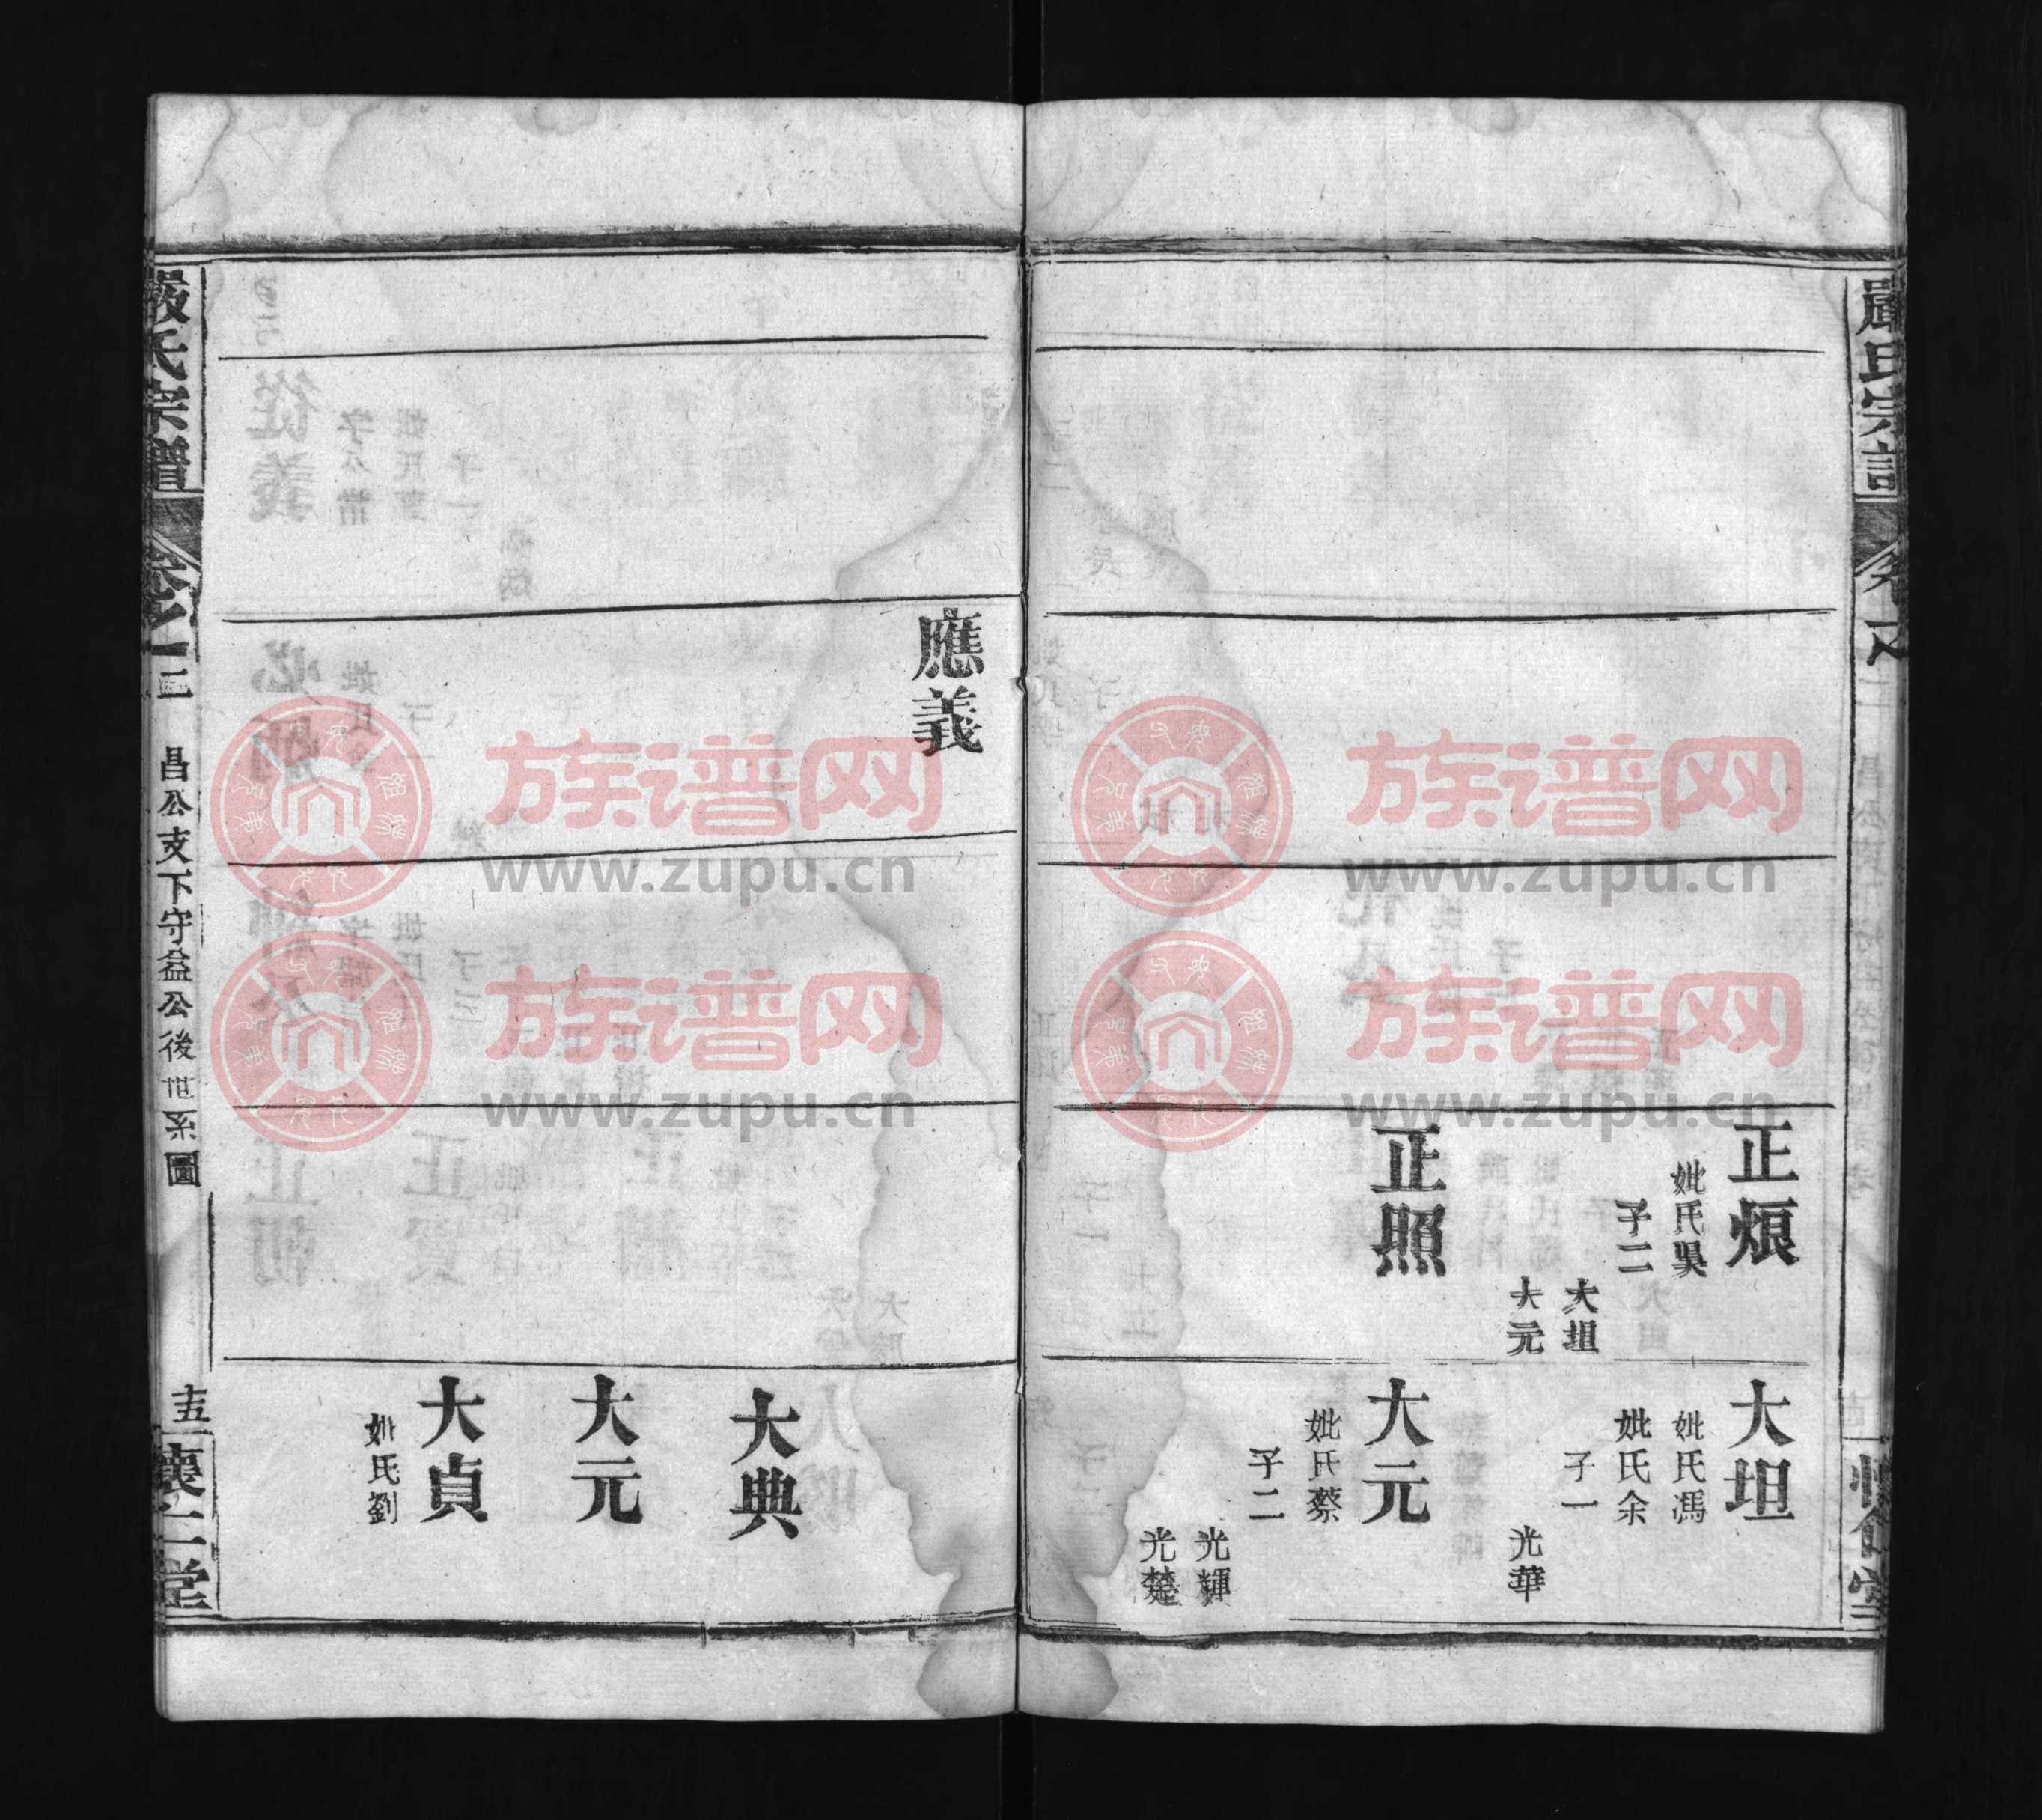 正煩
妣氏吳
子二
大坦
大元
正照
大坦
妣氏馮
妣氏余
子一
光華
大元
妣氏蔡
子二
光輝
光楚
應義
大典
大元
大貞
妣氏劉
嚴氏宗譜
卷一二
昌公支下守益公後世系圖
十五
懷仁堂
族谱网
www.zupu.cn
族谱网
www.zupu.cn
族谱网
www.zupu.cn
族谱网
www.zupu.cn